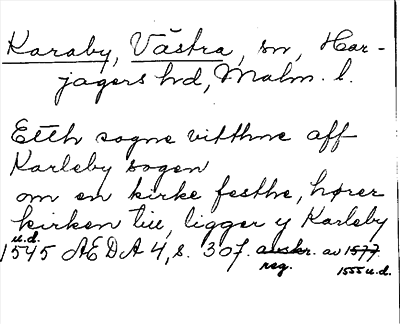 Karaby, Västra, sn, Har-
jagers hd, Malm. l.
Etth sogne vitthne aff
Karleby sogen
om en kirke festhe, hører
kirken till, ligger y Karleby
u.d.
1545 AEDA 4, s. 307. avskr. av 1577
reg. 1555 u.d.